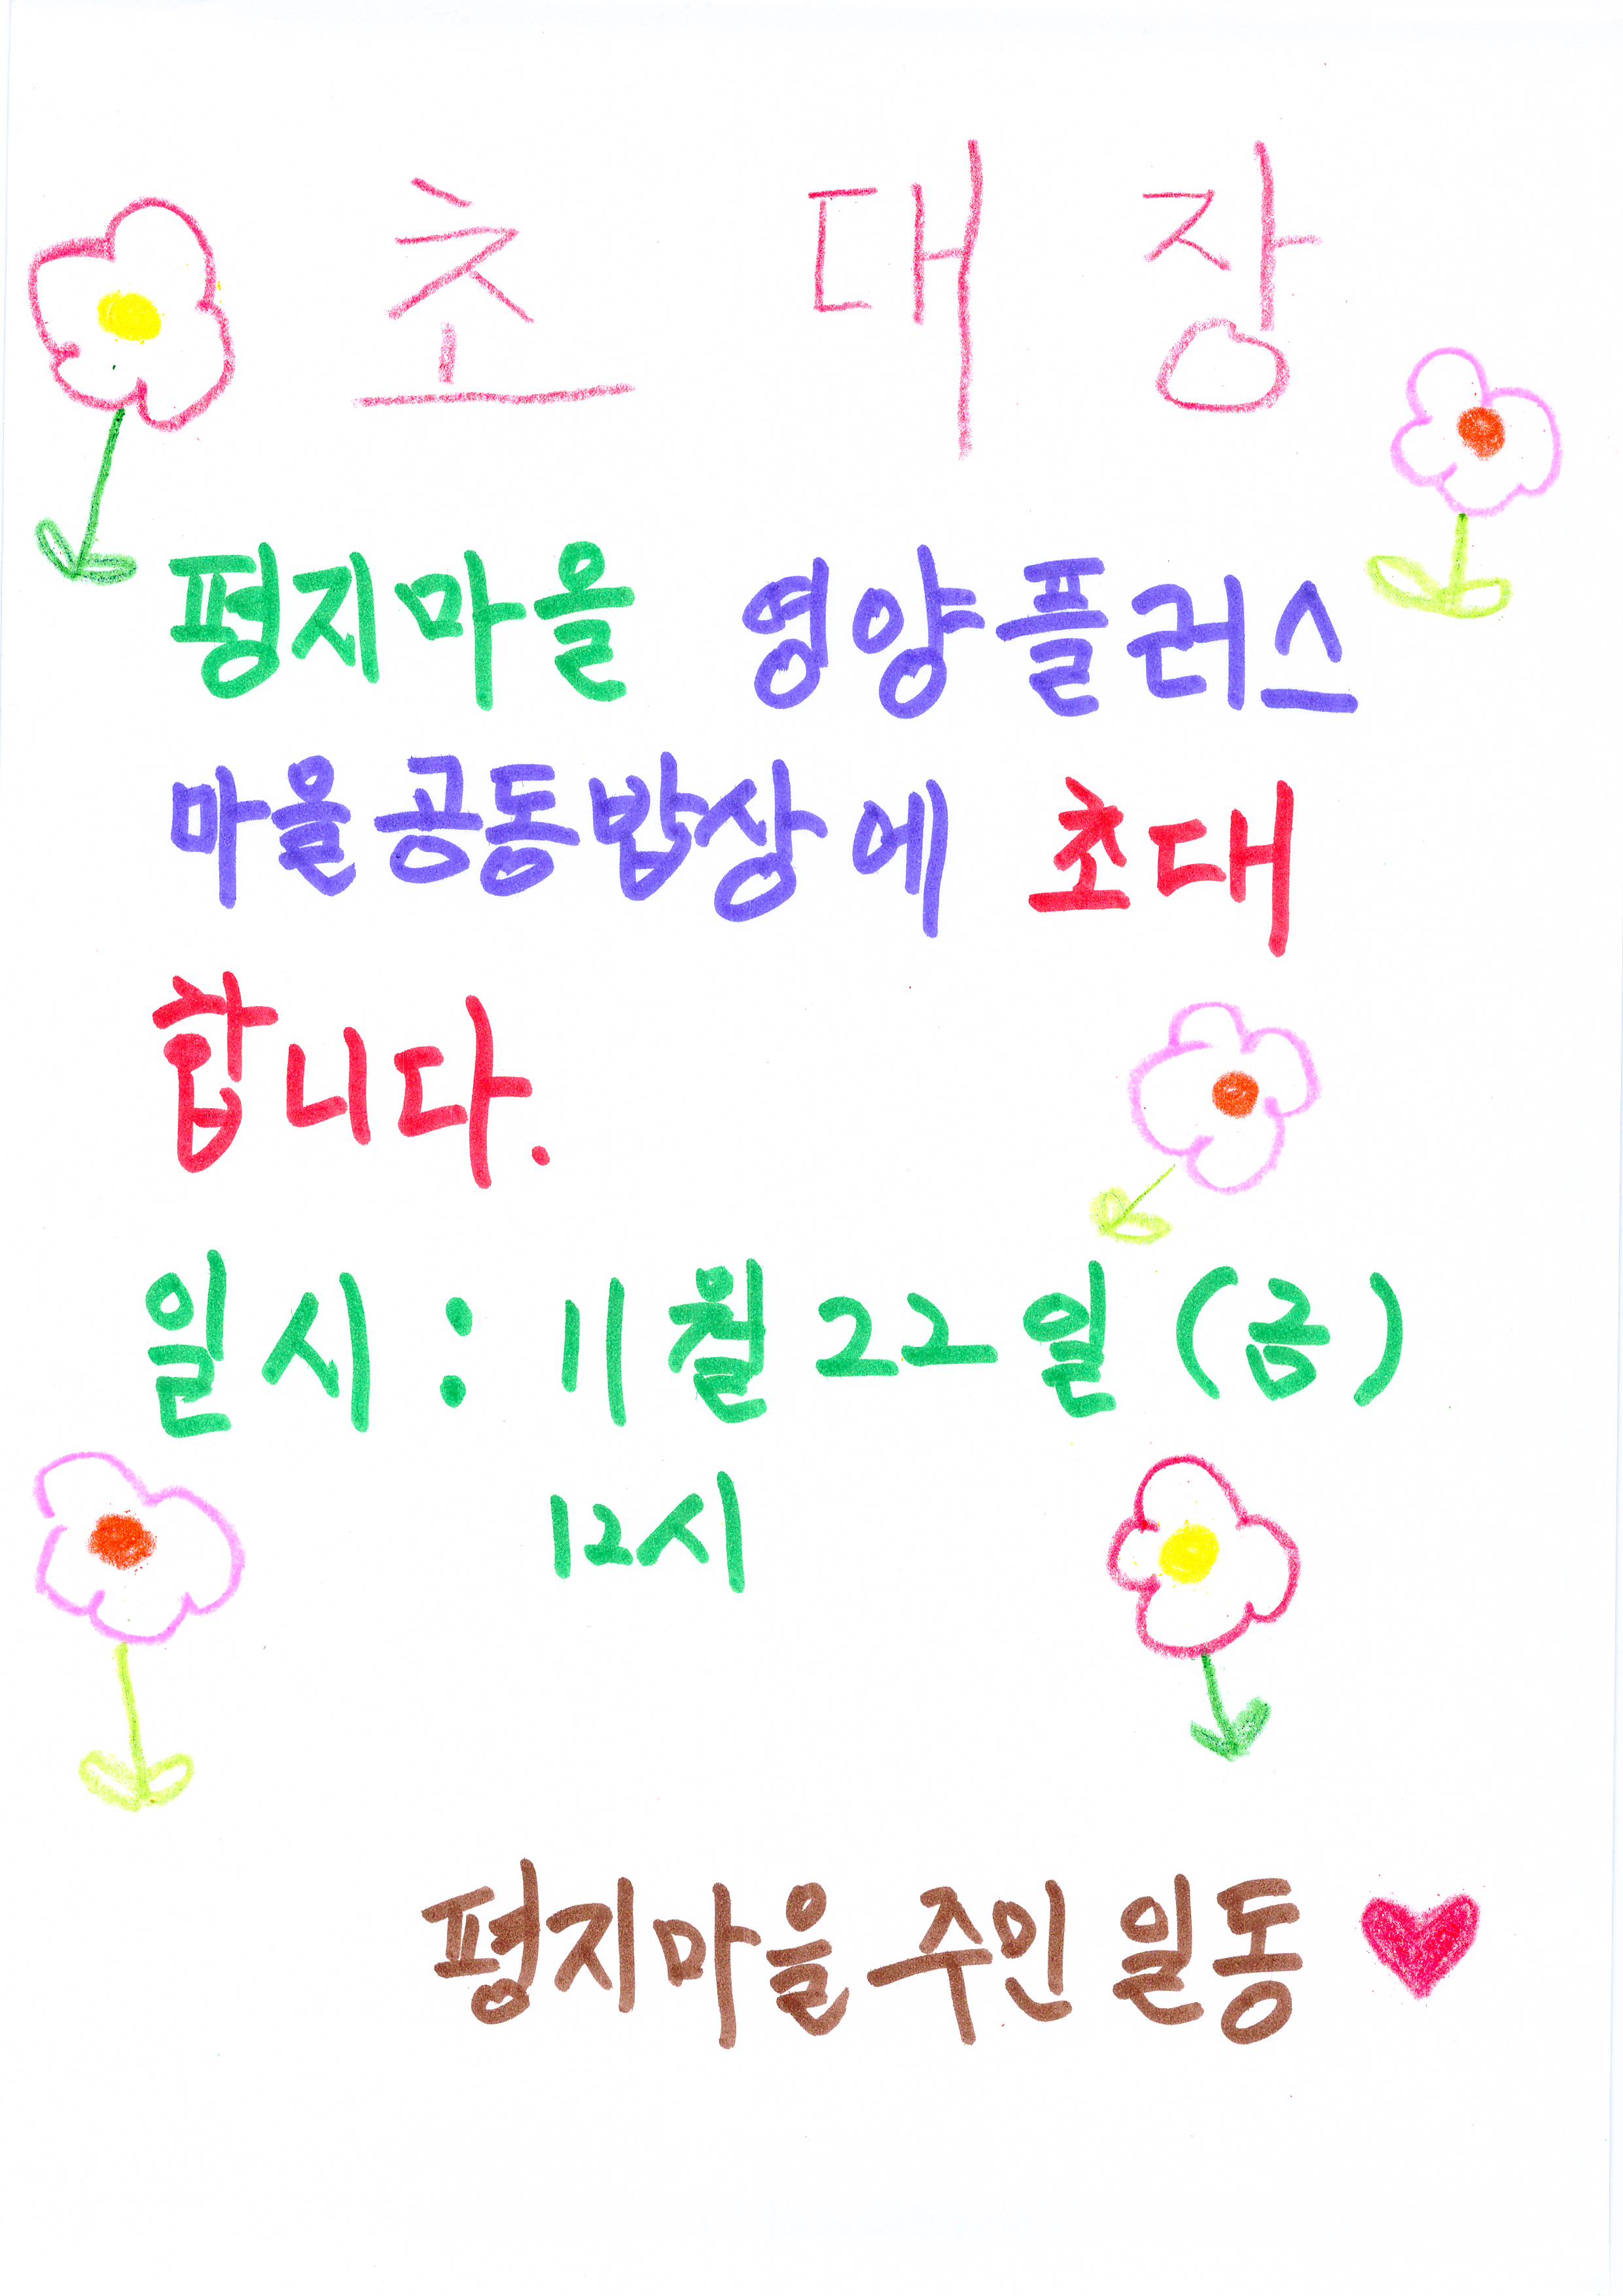 초대장
평지마을 영양플러스
마을공동밥상에 초대
합니다.
일시 : 11월 22일 (금)
12시
평지마을 주민 일동